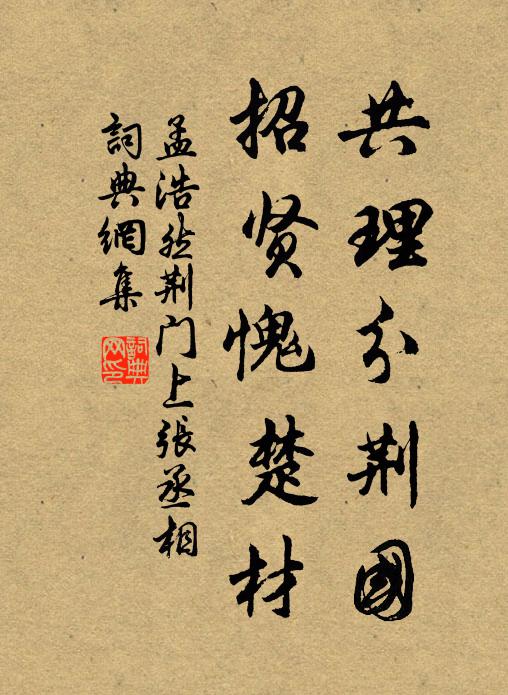 共理分荆國
招贤愧楚材
孟浩然荆门上張丞相
詞典網集
詞典
网印